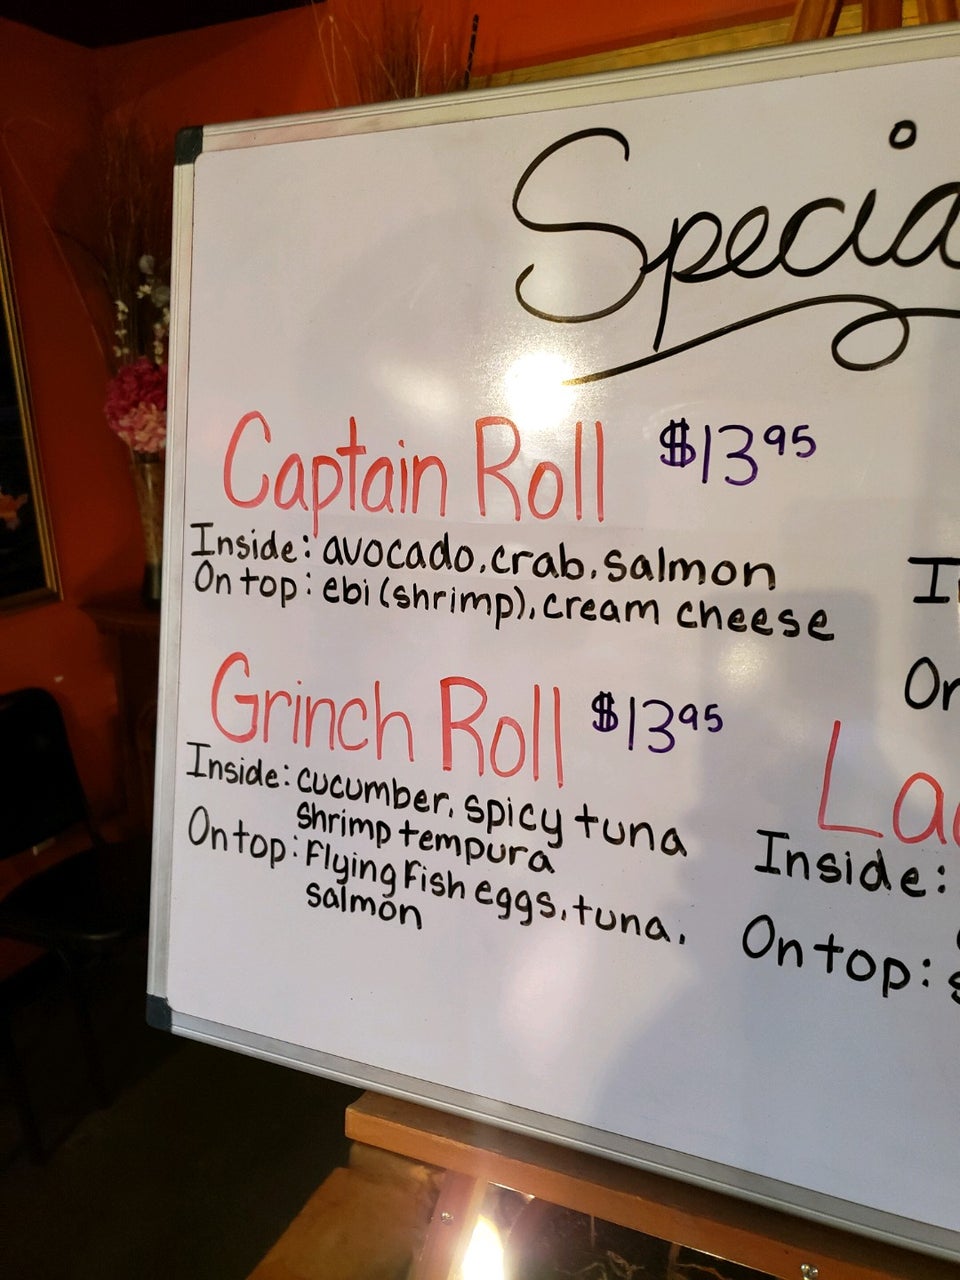 Captain Roll $13.95
Inside: avocado, crab, salmon
On top: ebi (shrimp), cream cheese
Grinch Roll $13.95
Inside: cucumber, spicy tuna
shrimp tempura
On top: Flying Fish eggs, tuna,
salmon
Inside:
On top: